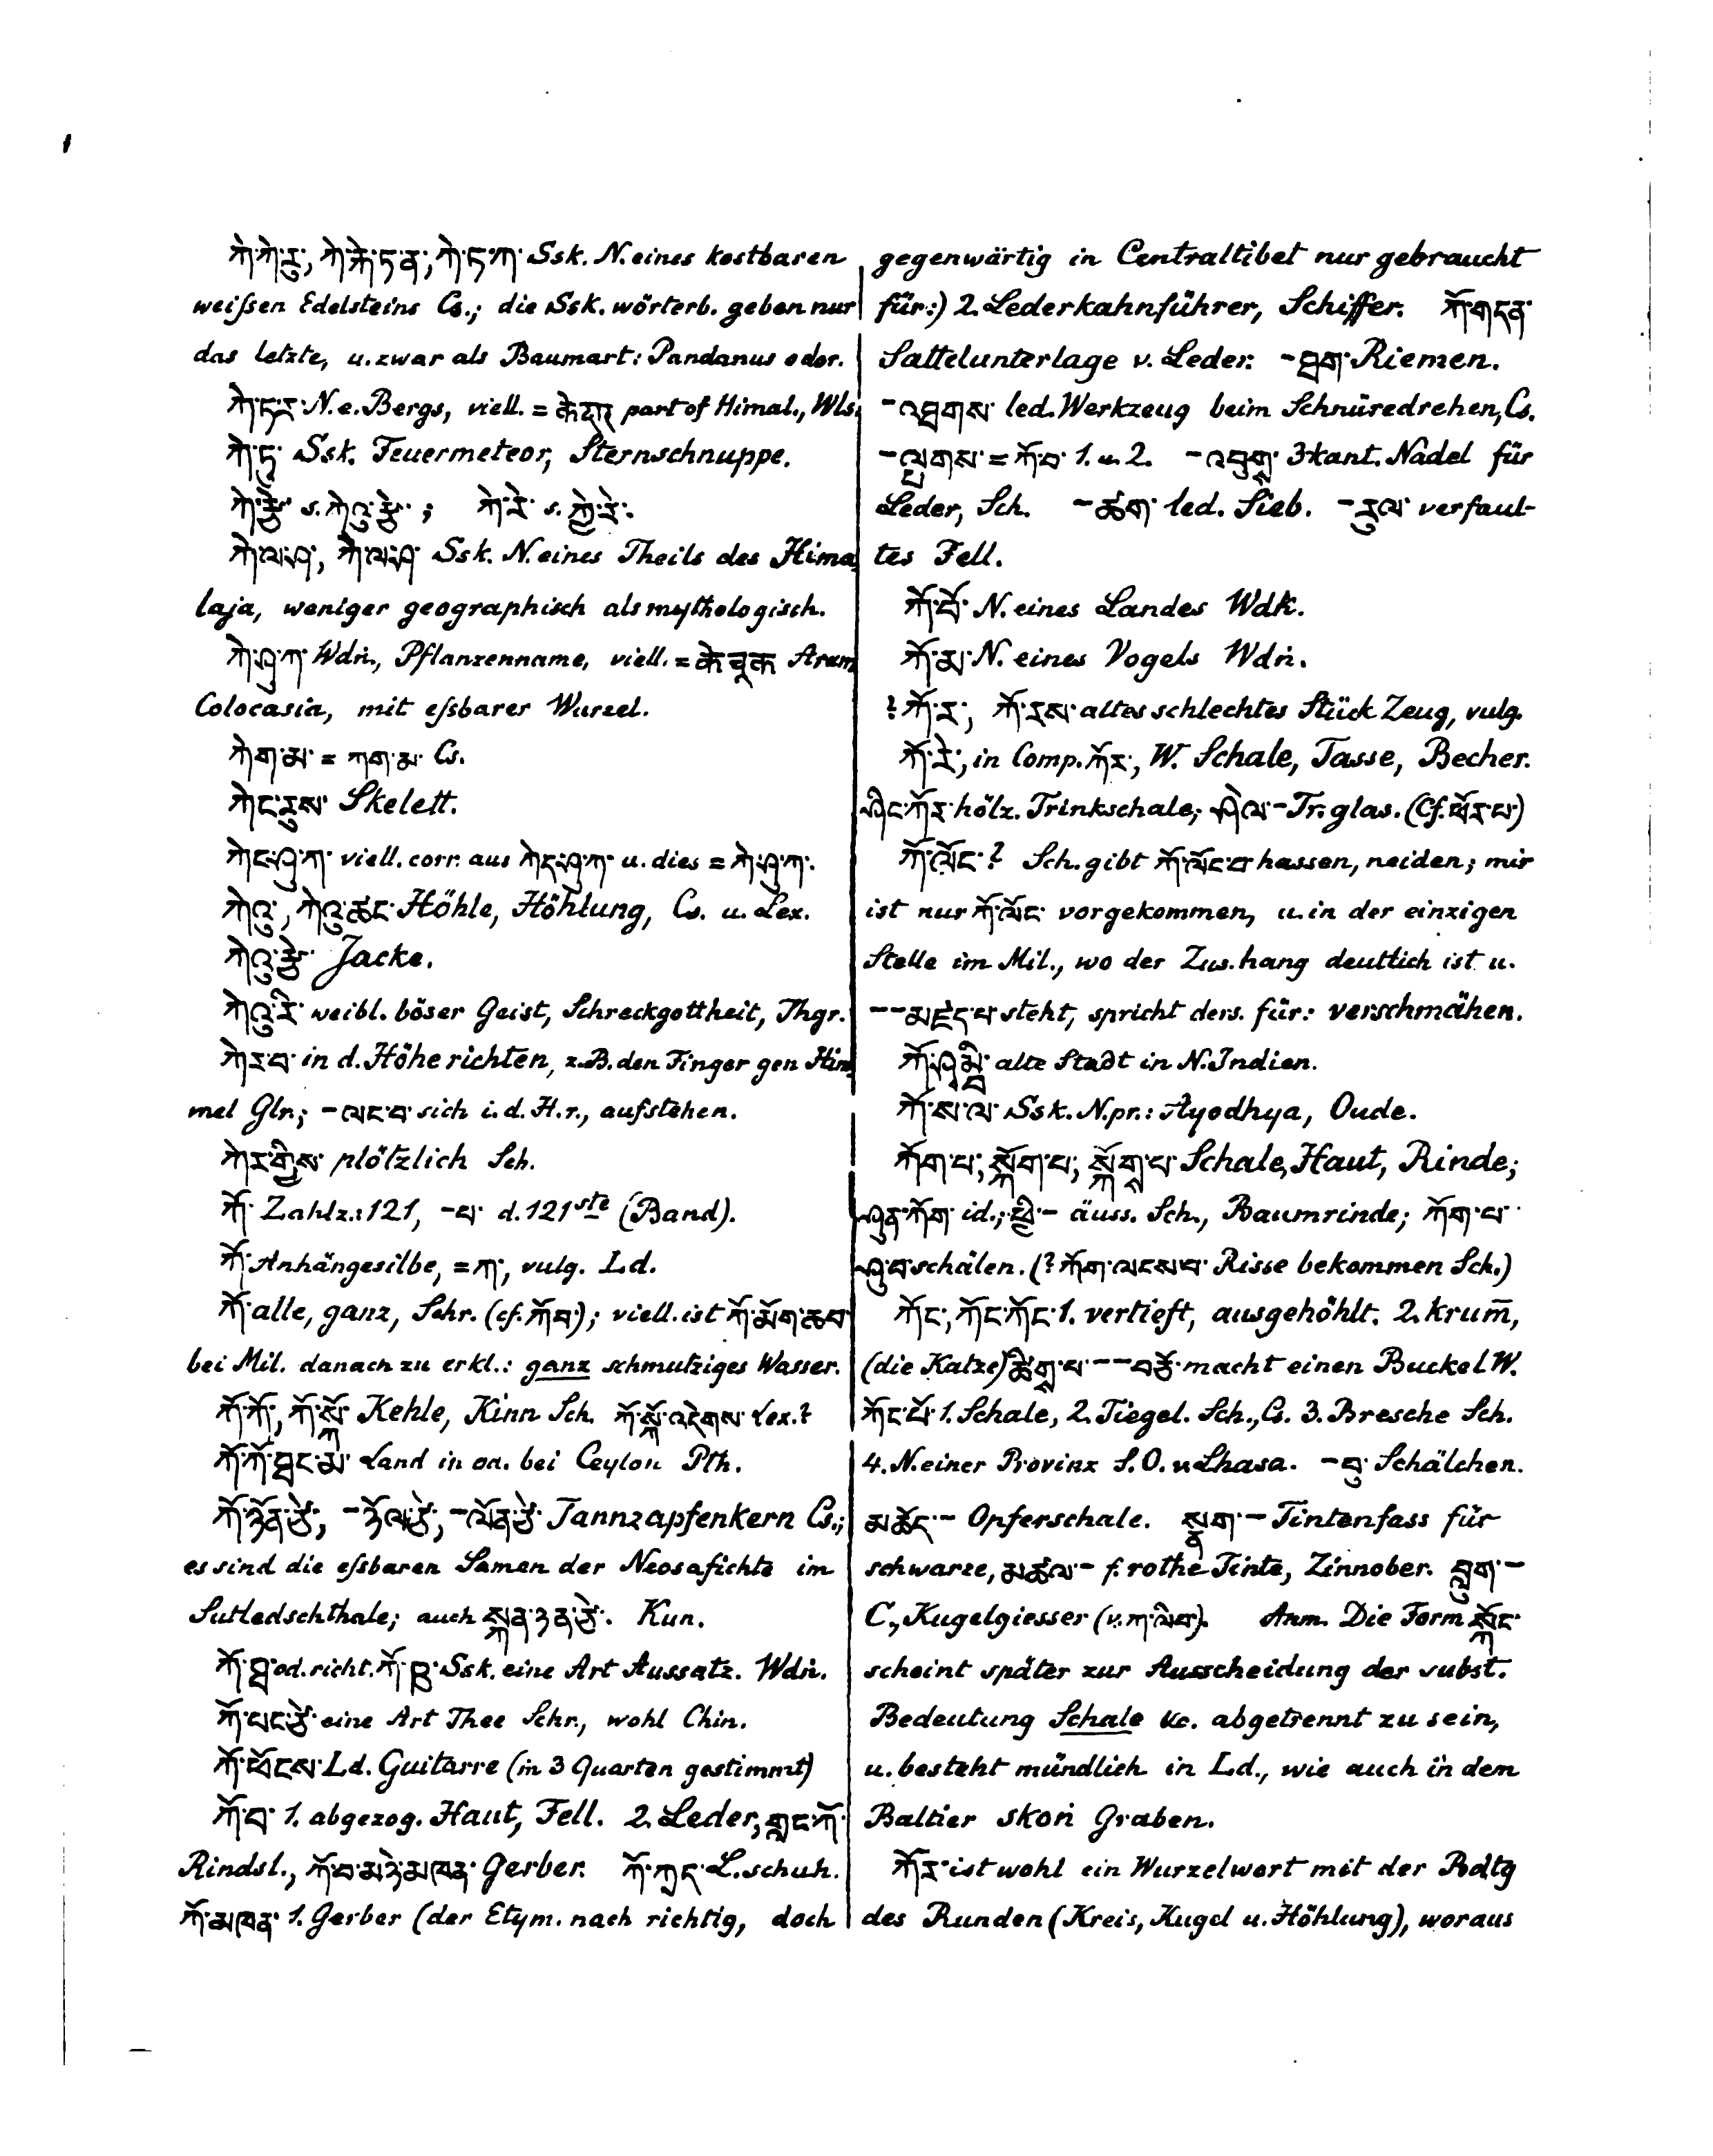 ཀེ་ཀེ་རུ་, ཀེ་རྐེ་ཏ་ན་, ཀེ་ཏ་ཀ་ Ssk. N. eines kostbaren
weiſsen Edelsteins Cs.; die Ssk. wörterb. geben nur
das letzte, u. zwar als Baumart: Pandanus odor.
ཀེ་ཏ་ར་ N. e. Bergs, viell. = केदार part of Himal., Wls.
ཀེ་ཏུ་ Ssk. Feuermeteor, Sternschnuppe.
ཀེ་རྩེ་ s. ཀེའུ་རྩེ་; ཀེ་རེ་ s. ཀྱེ་རེ་.
ཀེ་ལ་ཤ་, ཀཻ་ལ་ཤ་ Ssk. N. eines Theils des Hima-
laja, weniger geographisch als mythologisch.
ཀེ་ཤུ་ཀ་ Wdṅ., Pflanzenname, viell. = केचूक Arum
Colocasia, mit eſsbarer Wurzel.
ཀེག་མ་ = ཀག་མ་ Cs.
ཀེང་རུས་ Skelett.
ཀེང་ཤུ་ཀ་ viell. corr. aus ཀེད་ཤུ་ཀ་ u. dies = ཀེ་ཤུ་ཀ་.
ཀེའུ་, ཀེའུ་ཚང་ Höhle, Höhlung, Cs. u. Lex.
ཀེའུ་རྩེ་ Jacke.
ཀེའུ་རི་ weibl. böser Geist, Schreckgottheit, Thgr.
ཀེར་བ་ in d. Höhe richten, z. B. den Finger gen Him-
mel Glr.; -ལང་བ་ sich i. d. H. r., aufstehen.
ཀེར་གྱིས་ plötzlich Sch.
ཀོ་ Zahlz.: 121, -པ་ d. 121ste (Band).
ཀོ་ Anhängesilbe, = ཀ་, vulg. Ld.
ཀོ་ alle, ganz, Schr. (cf. ཀོབ་); viell. ist ཀོ་མོག་ཆབ་
bei Mil. danach zu erkl.: ganz schmutziges Wasser.
ཀོ་ཀོ་, ཀོ་སྐོ་ Kehle, Kinn Sch. ཀོ་སྐོ་འདེགས་ Lex.?
ཀོ་ཀོ་ཐང་མ་ Land in od. bei Ceylon Pth.
ཀོ་ཉོན་ཙེ་, -ཉོལ་ཙེ་, -ལོན་ཙེ་ Tannzapfenkern Cs.;
es sind die eſsbaren Samen der Neosafichte im
Sutledschthale; auch སྐན་ཉན་ཙེ་. Kun.
ཀོ་ཐ་ od. richt. ཀོ་ཋ་ Ssk. eine Art Aussatz. Wdṅ.
ཀོ་པང་ཙེ་ eine Art Thee Schr., wohl Chin.
ཀོ་ཕོངས་ Ld. Guitarre (in 3 Quarten gestimmt)
ཀོ་བ་ 1. abgezog. Haut, Fell. 2. Leder, གླང་ཀོ་
Rindsl., ཀོ་བ་མཉེ་མཁན་ Gerber. ཀོ་ཀྲད་ L. schuh.
ཀོ་མཁན་ 1. Gerber (der Etym. nach richtig, doch
gegenwärtig in Centraltibet nur gebraucht
für:) 2. Lederkahnführer, Schiffer. ཀོ་གདན་
Sattelunterlage v. Leder. -ཐག་ Riemen.
-འཐགས་ led. Werkzeug beim Schnüredrehen, Cs.
-ལྤགས་ = ཀོ་བ་ 1. u. 2. -འབུགྲ་ 3kant. Nadel für
Leder, Sch. -ཚག་ led. Sieb. -རུལ་ verfaul-
tes Fell.
ཀོ་པོ་ N. eines Landes Wdk.
ཀོ་མ་ N. eines Vogels Wdṅ.
? ཀོ་ར་, ཀོ་རས་ altes schlechtes Stück Zeug, vulg.
ཀོ་རེ་, in Comp. ཀོར་, W. Schale, Tasse, Becher.
ཤིང་ཀོར་ hölz. Trinkschale; ཤེལ་- Tr. glas. (Cf. ཕོར་པ་)
ཀོ་ལོང་? Sch. gibt ཀོ་ལོང་བ་ hassen, neiden; mir
ist nur ཀོ་ལོང་ vorgekommen, u. in der einzigen
Stelle im Mil., wo der Zus. hang deutlich ist u.
--མཛད་པ་ steht, spricht ders. für: verschmähen.
ཀོ་ཤམྦི་ alte Stadt in N. Indien.
ཀོ་ས་ལ་ Ssk. N. pr.: Ayodhya, Oude.
ཀོག་པ་, སྐོག་པ་, སྐོགླ་པ་ Schale, Haut, Rinde;
ཤུན་ཀོག་ id.; ཕྱི་- äuss. Sch., Baumrinde; ཀོག་པ་
ཤུ་བ་ schälen. (? ཀོག་ལངས་བ་ Risse bekommen Sch.)
ཀོང་, ཀོང་ཀོང་ 1. vertieft, ausgehöhlt. 2. krum̄,
(die Katze) ཚིགླ་པ་ --བཅོ་ macht einen Buckel W.
ཀོང་པོ་ 1. Schale, 2. Tiegel. Sch., Cs. 3. Bresche Sch.
4. N. einer Provinz S. O. v. Lhasa. -བུ་ Schälchen.
མཆོད་- Opferschale. སྣག་- Tintenfass für
schwarze, མཚལ་- f. rothe Tinte, Zinnober.
C., Kugelgiesser (v. ཀ་ལིབ་). Anm. Die Form སྐོང་
scheint später zur Ausscheidung der subst.
Bedeutung Schale &c. abgetrennt zu sein,
u. besteht mündlich in Ld., wie auch in dem
Baltier skoṅ Graben.
ཀོར་ ist wohl ein Wurzelwort mit der Bdtg
des Runden (Kreis, Kugel u. Höhlung), woraus